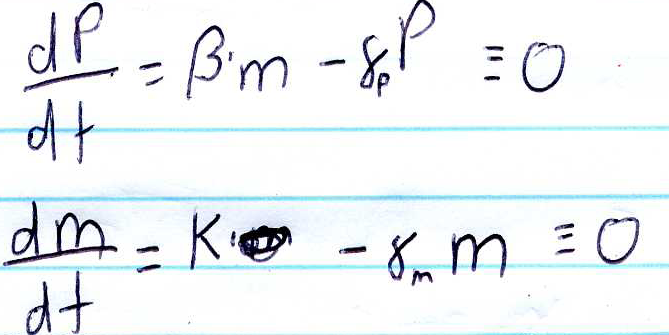 dP/dt = β·m - γₚP ≡ 0
dm/dt = K· - γₘ m ≡ 0